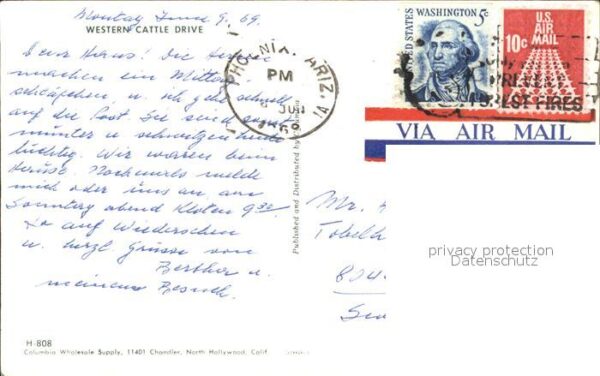 Montag June 9. 69.
WESTERN CATTLE DRIVE
Dear Hans! Die
machen ein Mittag
schläpfchen, u. ich geh schnell
auf die Post Sie send
munter u. schwatzen
tüchtig. Wir waren beim
melde
mich oder uns an am
Sonntag abend Kloten 9 30
So auf Wiedersehen
u. herzl. Grüsse von
Bertha u.
meinem Besuch.
PHOENIX, ARIZ
PM
JUN
1969
UNITED STATES
WASHINGTON 5c
U.S.
AIR
MAIL
10c
PREVENT
FOREST FIRES
VIA AIR MAIL
Published and Distributed by
Mr.
804
privacy protection
Datenschutz
H-808
Columbia Wholesale Supply, 11401 Chandler, North Hollywood, Calif.